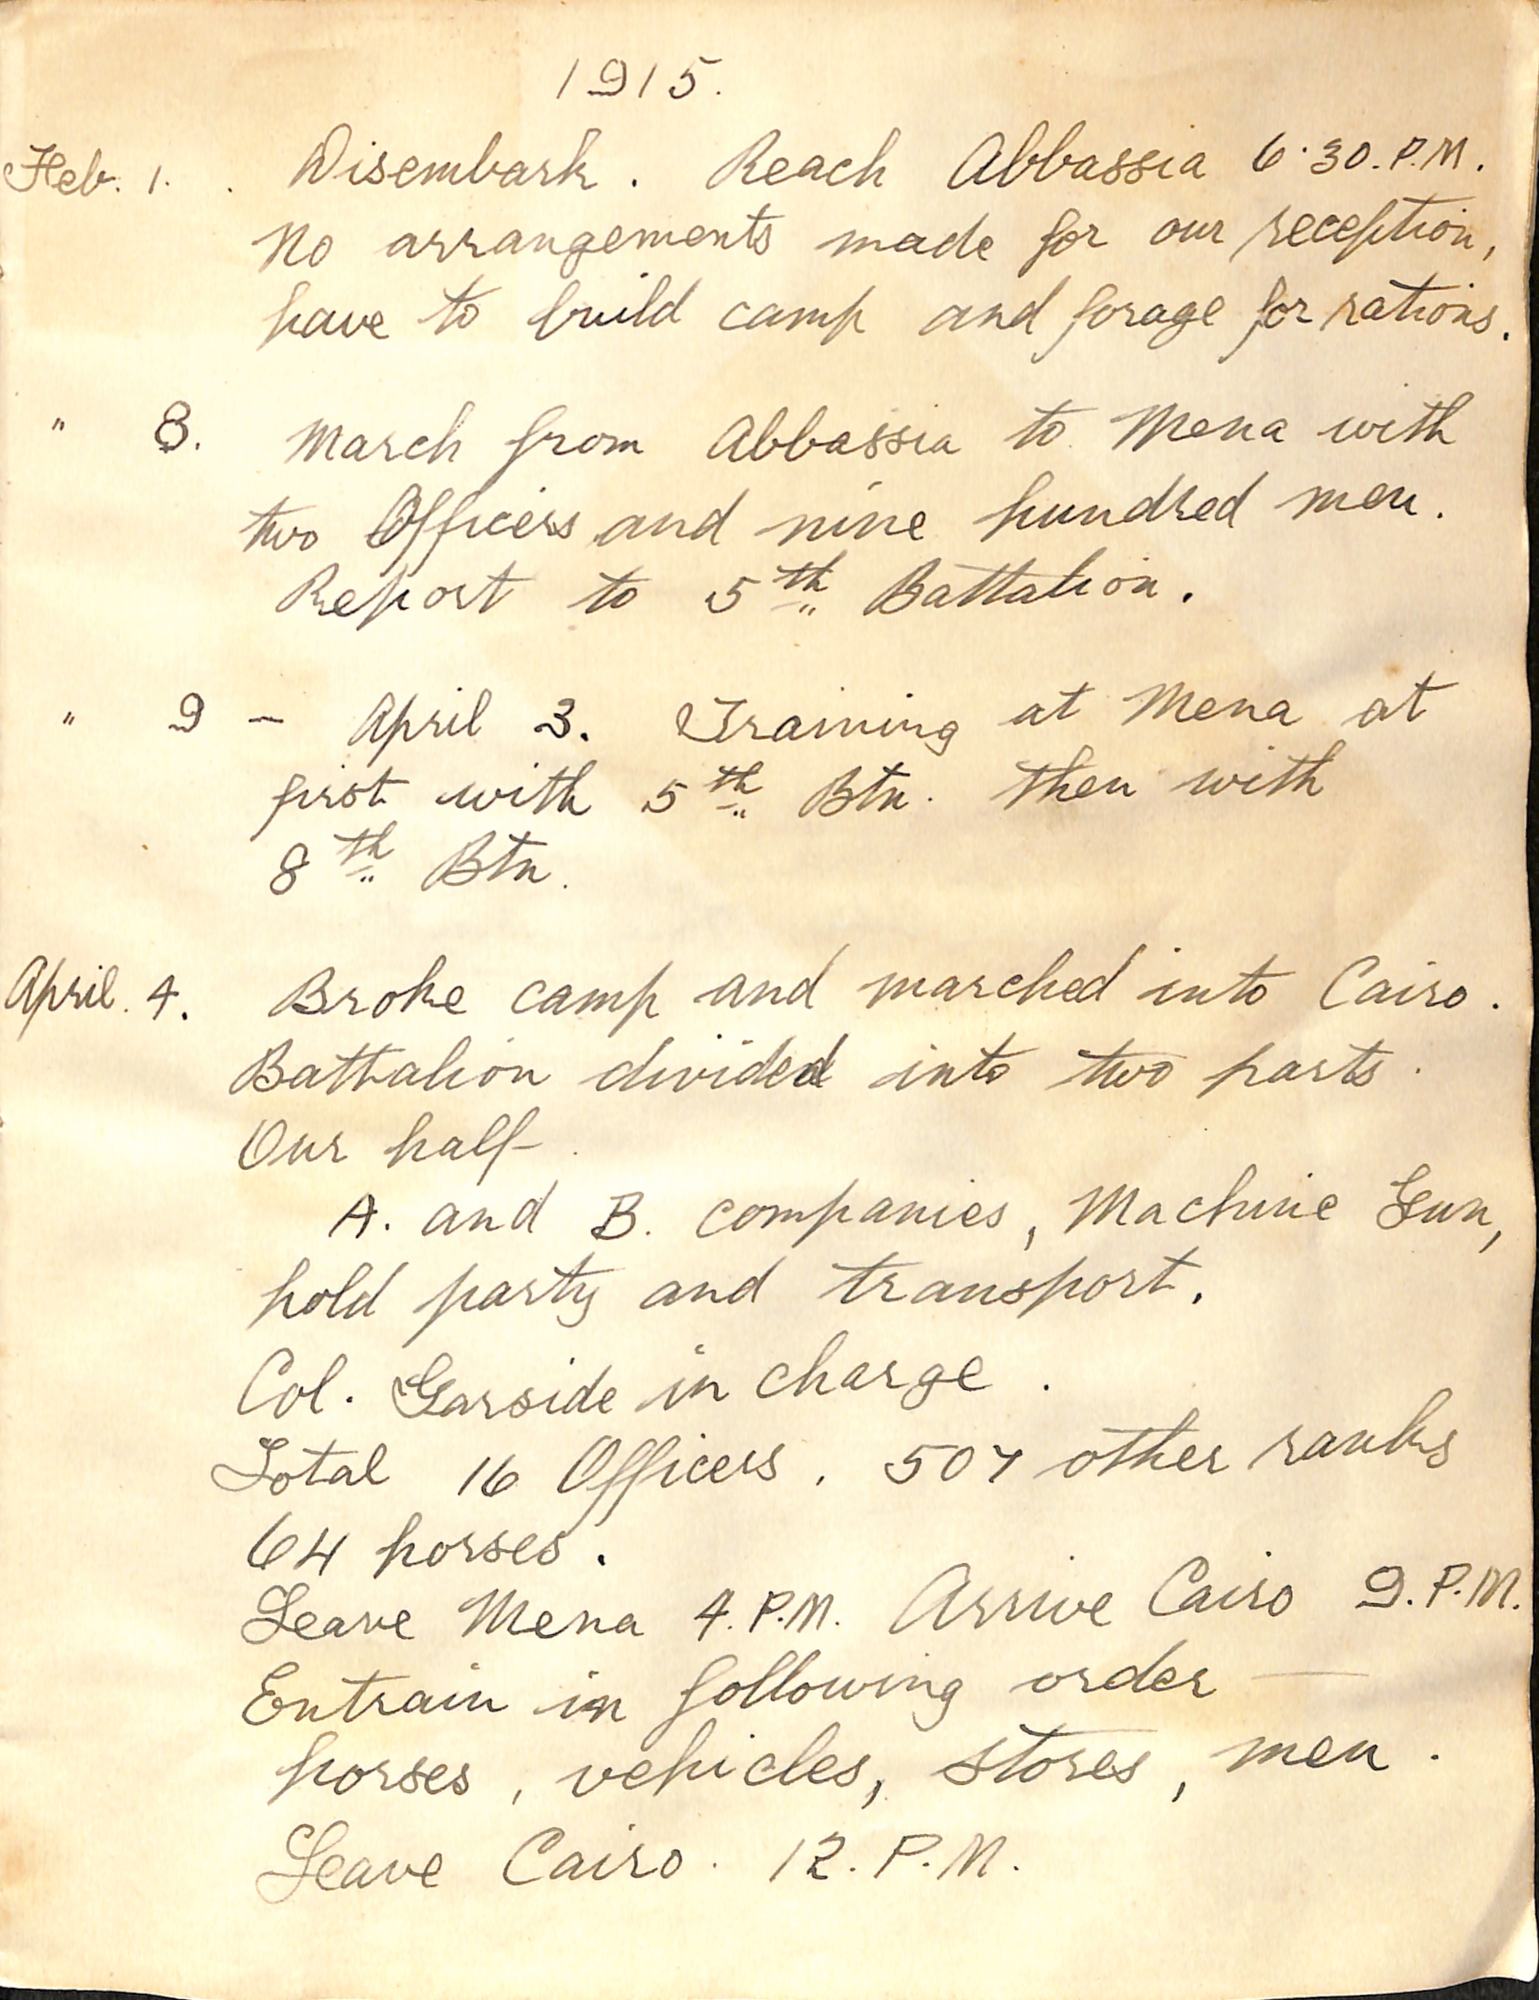 1915.
Feb. 1. Disembark. Reach Abbassia 6·30. P.M.
No arrangements made for our reception,
have to build camp and forage for rations.
" 8. March from Abbassia to Mena with
two Officers and nine hundred men.
Report to 5th Battalion.
" 9 - April 3. Training at Mena at
first with 5th Btn. then with
8th Btn.
April. 4. Broke camp and marched into Cairo.
Battalion divided into two parts.
Our half
A. and B. companies, Machine Gun,
hold party and transport.
Col. Garside in charge.
Total 16 Officers. 507 other ranks
64 horses.
Leave Mena 4. P.M. Arrive Cairo 9. P.M.
Entrain in following order —
horses, vehicles, stores, men.
Leave Cairo. 12. P.M.